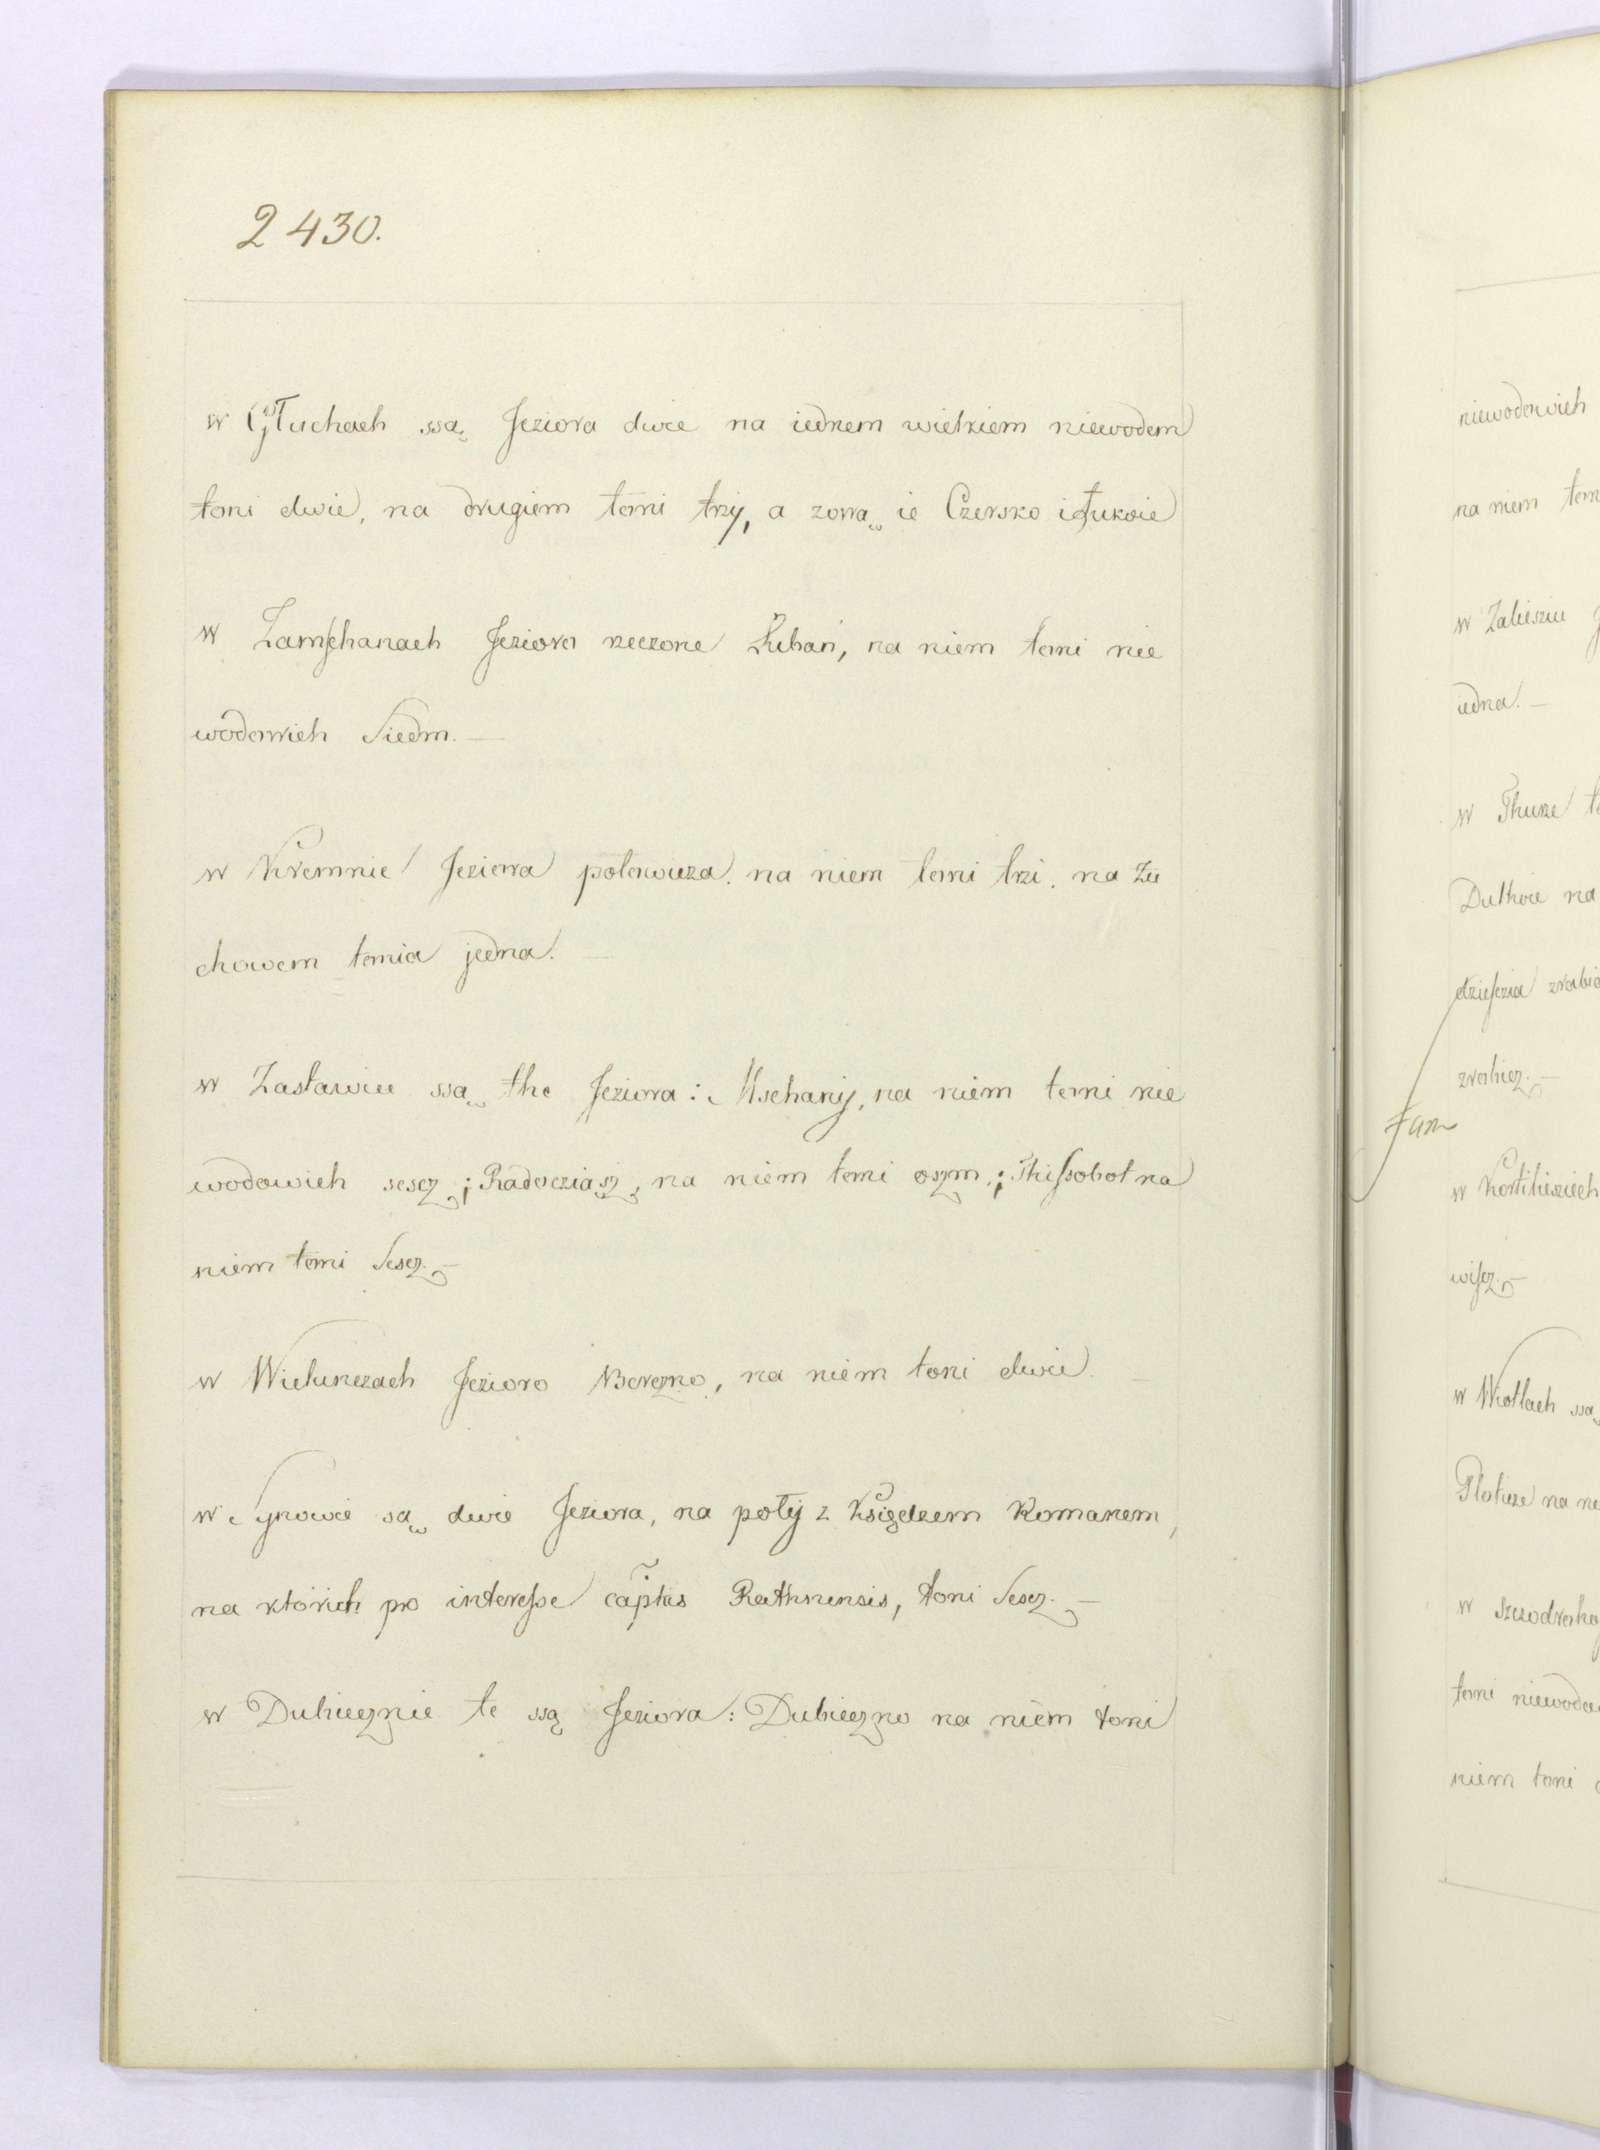 2430.
w Głuchach ssą Jeziora dwie na iednem wielkiem niewodem
toni dwie, na drugiem toni trzy, a zową ie Czersko i Łukoie
w Zamschanach Jezioro rzeczone Łuban, na niem toni nie
wodowich Siedm. —
w Kremnie Jeziora polowicza. na niem toni trzi. na Zu
chowem tonia jedna. —
w Zastawiu ssą the Jeziora: Mschany, na niem toni nie
wodowich sescz; Radocziasz, na niem toni oszm; Thissobol na
niem toni Sescz. —
w Wielunczach Jezioro Berezno, na niem toni dwie. —
w Synowie są dwie Jeziora, na poły z Księdzem Romanem,
na których pro interesse captus Rathnensis, toni Sescz. —
w Dubiecznie te ssą Jeziora: Dubieczno na niem toni
niewodowich
na niem toni
w Zaliesziu
iedna. —
w Thurze
Dulkoie na
dziescia
w
wiscz. —
w Wiotlach ssą
na
w
toni
niem toni